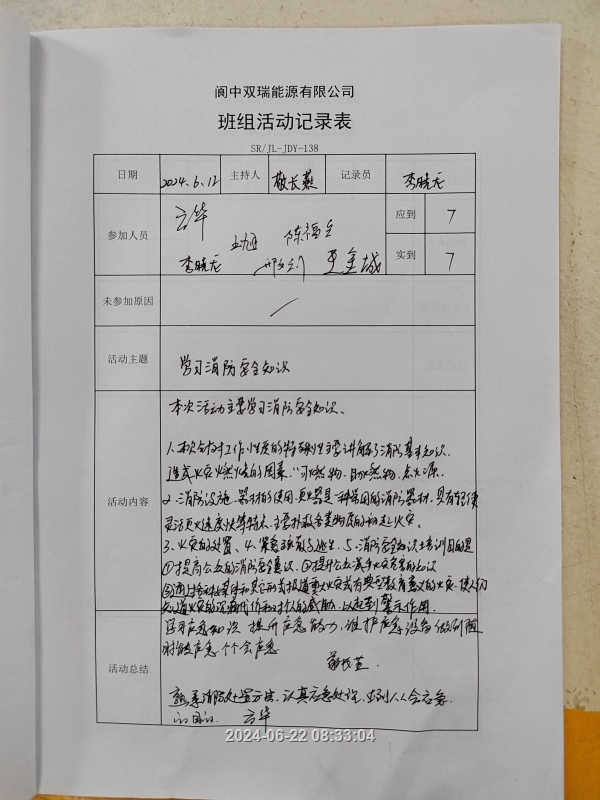 阆中双瑞能源有限公司
班组活动记录表
SR/JL-JDY-138
日期 2024.6.12 主持人 敬长燕 记录员 李晓
参加人员 华 应到 7
陈福
李晓 金城 实到 7
未参加原因 /
活动主题 学习消防安全知识
活动内容
本次活动主要学习消防安全知识、
1、本次针对工作性质的特殊性主要讲解了消防基本知识.
造成火灾燃烧的因素:可燃物、助燃物、点火源.
2、消防设施、器材的使用、灭火器是一种常用的消防器材,具有轻便
灵活灭火速度快等特点、主要扑救各类物质的初起火灾.
3、火灾的处置、4、紧急疏散与逃生、5、消防安全知识培训目的是
①提高公众的消防安全意识、②提升公众减少火灾危害的知识
③通过各种媒体和其它形式报道重大火灾或有典型教育意义的火灾、使人们
知道火灾的 代价和对人的威胁、以起到警示作用.
活动总结
应急知识 提升应急能力,维护应急设备做到随
时能应急 个个会应急
敬长
熟悉消防处置方法、认真应急处理、达到人人会应急
的目的. 华
2024-06-22 08:33:04